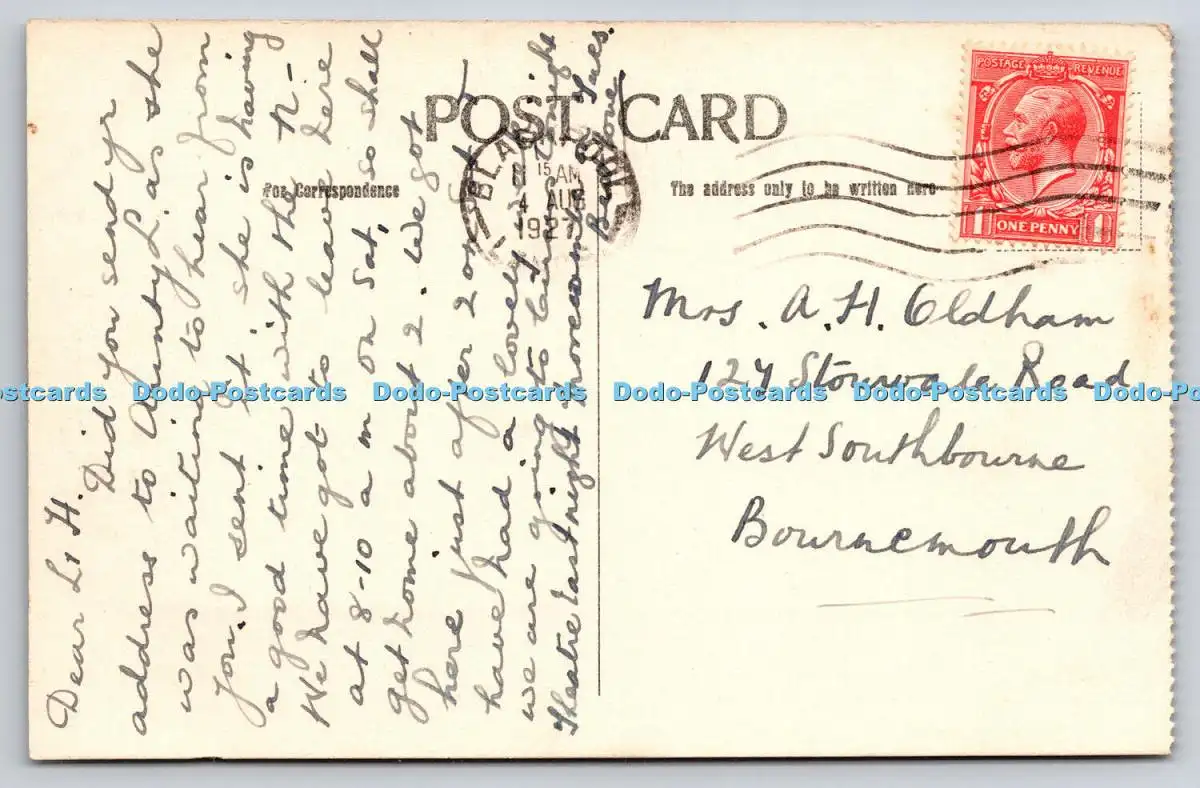 POST CARD
For Correspondence
The address only to be written here
POSTAGE REVENUE
1 ONE PENNY 1
BLACKPOOL
15 AM
4 AUG
1927
Dear L & H.
Did you send yr
address to Aunty L. as she
was waiting to hear from
you. I sent it she is having
a good time with the
We have got to leave here
at 8-10 a m on Sat, so shall
get home about 2. We got
here just after 2 on
have had a lovely
we are going to
Theatre last night
Mrs. A. H. Oldham
127 Stourvale Road
West Southbourne
Bournemouth
Dodo-Postcards Dodo-Postcards Dodo-Postcards Dodo-Postcards Dodo-Postcards Dodo-Postcards Dodo-Postcards Dodo-Postcards Dodo-Postcards Dodo-Postcards